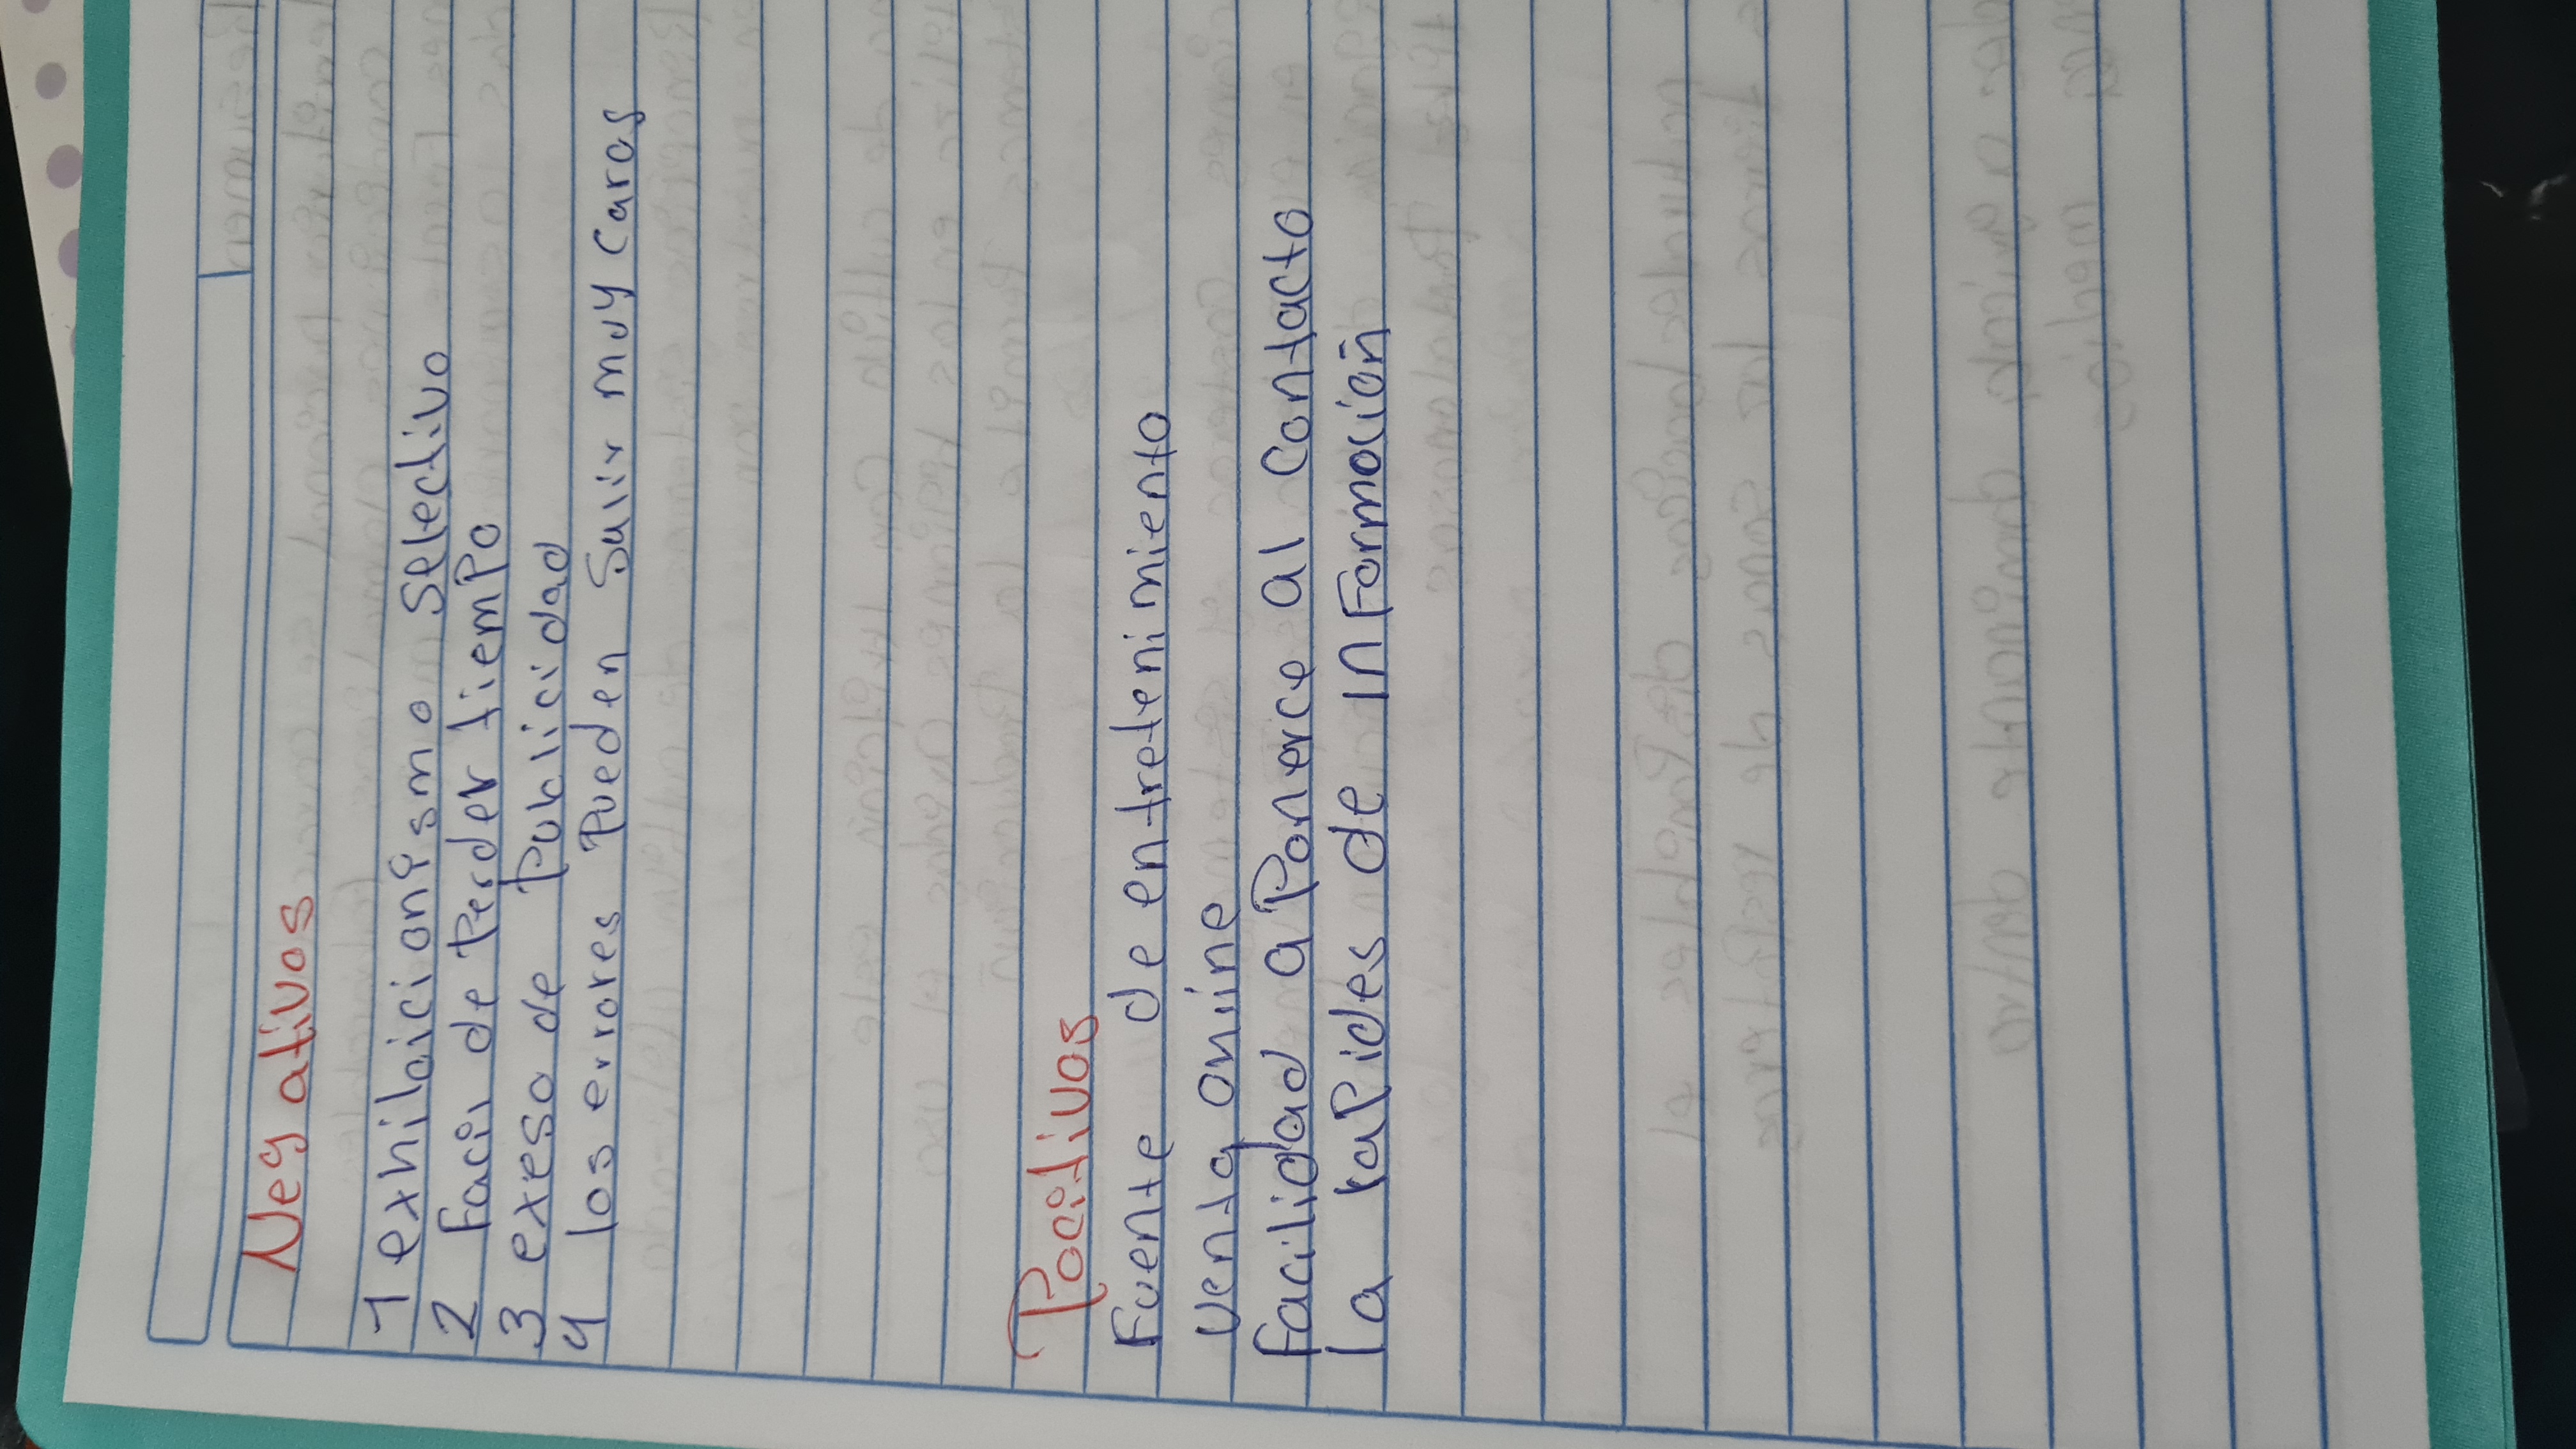 Negativos
1 exhibicionismo selectivo
2 Facil de Perder tiempo
3 exeso de Publicidad
4 los errores Pueden Salir muy Caros
Pocitivos
Fuente de entretenimiento
Venta onuine
facilidad a Ponerce al Contacto
la rapides de informacion